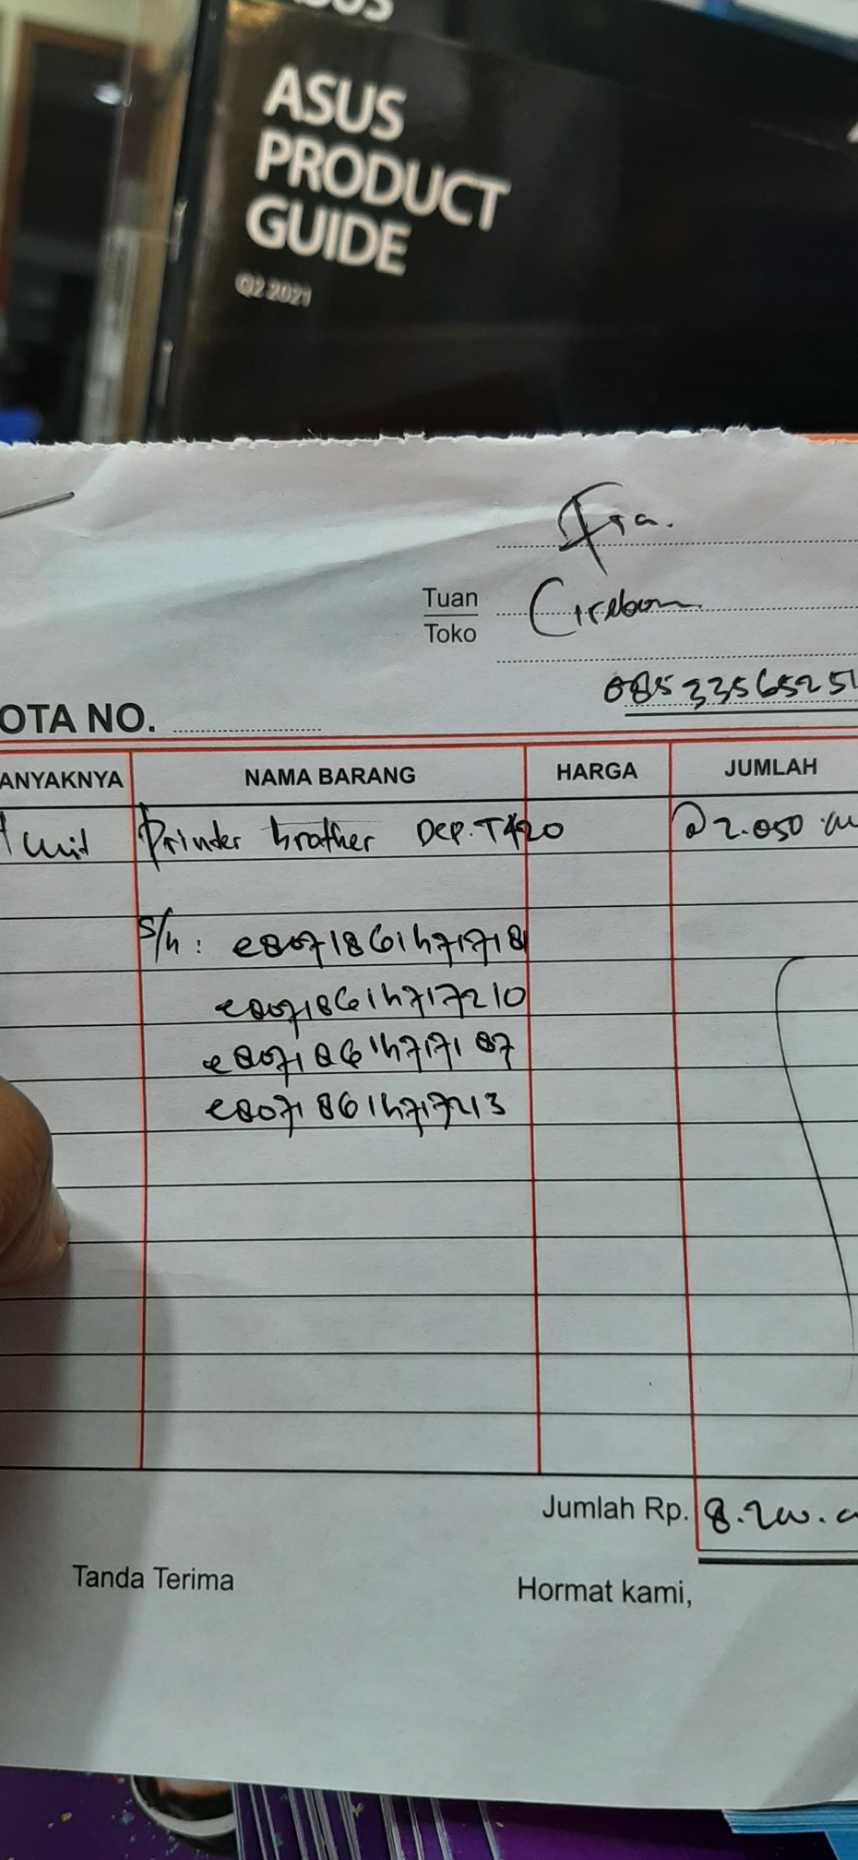 ASUS
PRODUCT
GUIDE
Q2 2021
Ira.
Tuan
Toko
Cirebon
08533565251
OTA NO.
ANYAKNYA NAMA BARANG HARGA JUMLAH
unit Printer brother DCP.T420 @ 2.050
S/n : e8071861h717181
e8071861h717210
e8071861h717187
e8071861h717213
Jumlah Rp. 8.200.
Tanda Terima
Hormat kami,